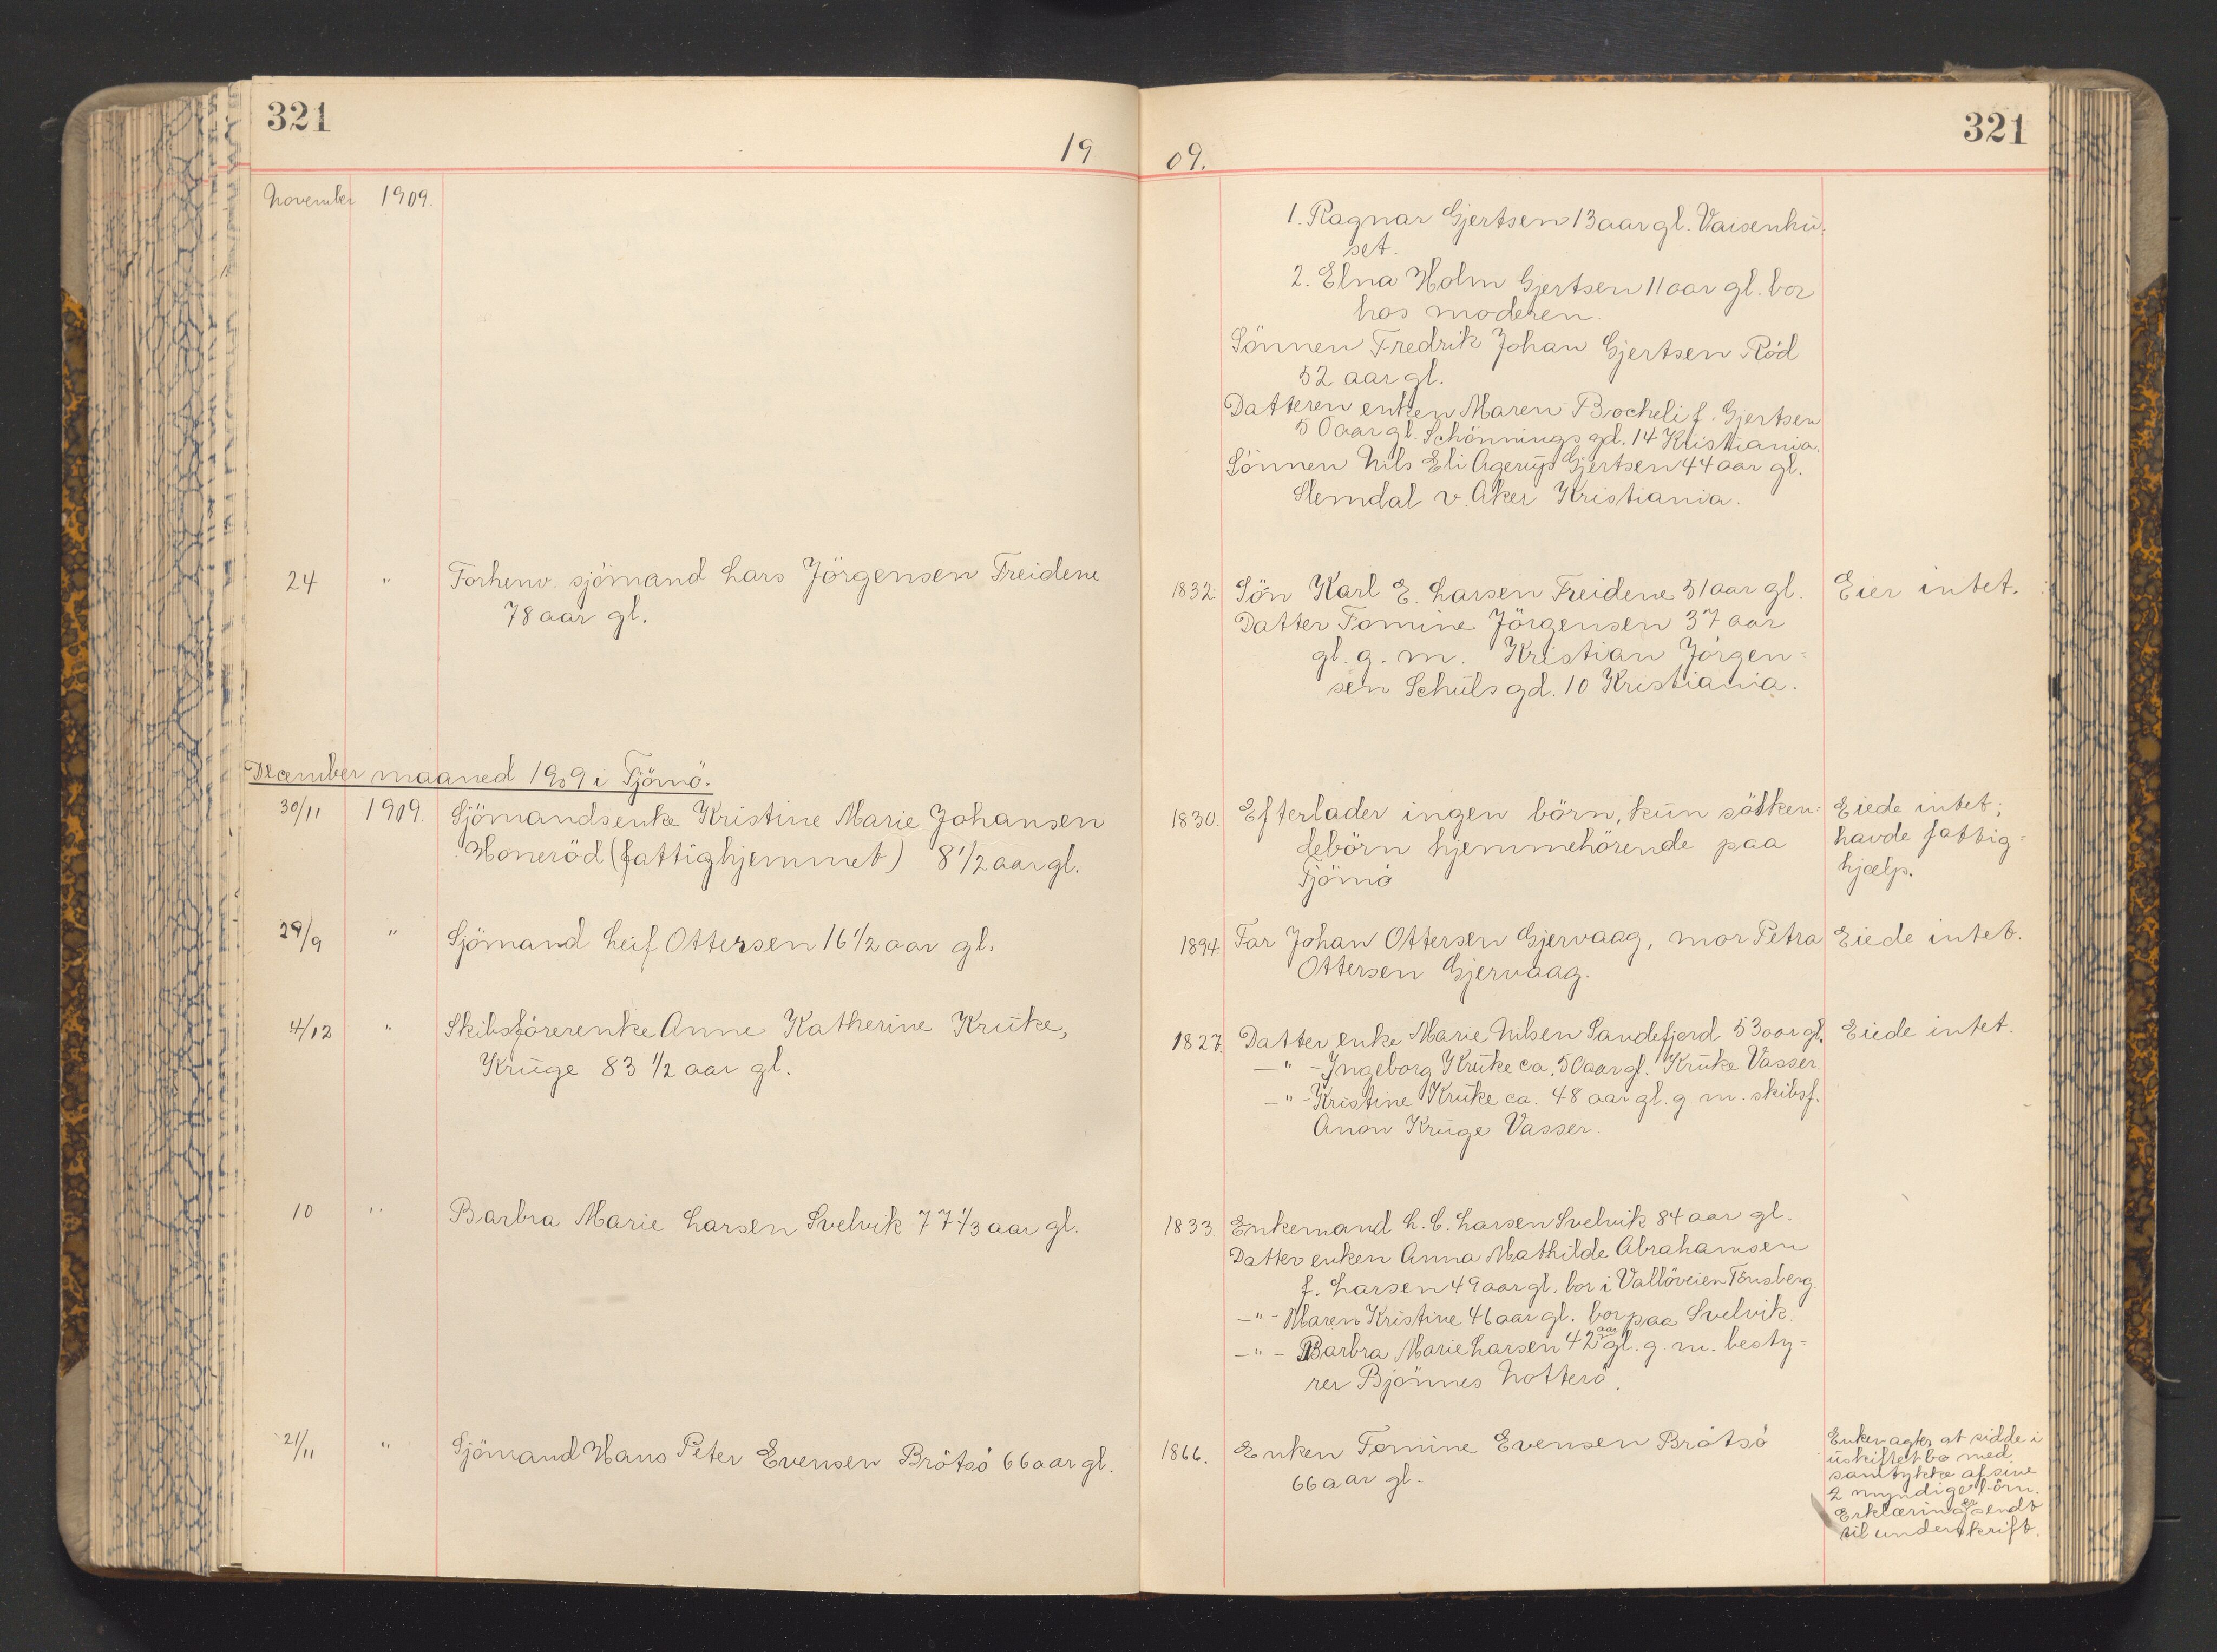 321
321
19 09.
November 1909.
1. Ragnar Gjertsen 13 aar gl. Vaisenhu-
set.
2. Elna Holm Gjertsen 11 aar gl. bor
hos moderen.
Sönnen Fredrik Johan Gjertsen Röd
52 aar gl.
Datteren enken Maren Bocheli f. Gjertsen
50 aar gl. Schönnings gd. 14 Kristiania.
Sönnen Nils Eli Agerup Gjertsen 44 aar gl.
Slemdal v. Aker Kristiania.
24 " Forhenv. sjömand Lars Jörgensen Treidene
78 aar gl.
1832. Sön Karl E. Larsen Treidene 51 aar gl.
Datter Tomine Jörgensen 37 aar
gl. g. m. Kristian Jörgen=
sen Schuls gd. 10 Kristiania.
Eier intet.
December maaned 1909 i Tjömö.
30/11 1909. Sjömandsenke Kristine Marie Johansen
Honeröd (fattighjemmet) 81/2 aar gl.
1830. Efterlader ingen börn, kun södsken=
debörn hjemmehörende paa
Tjömö
Eiede intet;
havde fattig=
hjælp.
29/9 " Sjömand Leif Ottersen 16 1/2 aar gl.
1894. Far Johan Ottersen Gjervaag, mor Petra
Ottersen Gjervaag.
Eiede intet.
4/12 " Skibsförerenke Anne Katherine Kruke,
Kruge 83 1/2 aar gl.
1827. Datter enke Marie Nilsen Sandefjord 53 aar gl.
—"— Ingeborg Kruke ca. 50 aar gl. Kruke Vasser.
—"— Kristine Kruke ca. 48 aar gl. g. m. skibsf.
Anon Kruge Vasser.
Eiede intet.
10 " Barbra Marie Larsen Svelvik 77 1/3 aar gl.
1833. Enkemand L. C. Larsen Svelvik 84 aar gl.
Datter enken Anna Mathilde Abrahamsen
f. Larsen 49 aar gl. bor i Vallöveien Tönsberg.
—"— Maren Kristine 46 aar gl. bor paa Svelvik.
—"— Barbra Marie Larsen 42 aar gl. g. m. besty=
rer Bjönnes Nötterö.
21/11 " Sjömand Hans Peter Evensen Brötsö 66 aar gl.
1866. Enken Tomine Evensen Brötsö
66 aar gl.
Enken agter at sidde i
uskiftet bo med
samtykke af sine
2 myndige börn.
Erklæring er sendt
til underskrift.